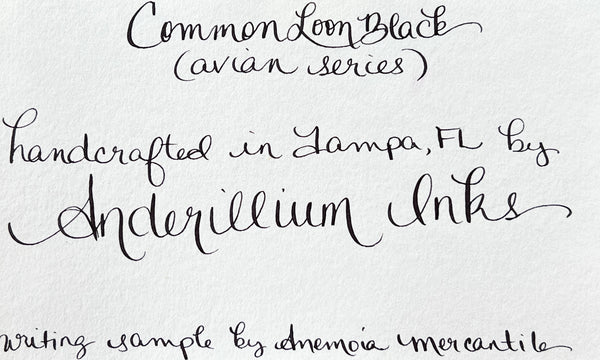 Common Loon Black
(avian series)
handcrafted in Tampa, FL by
Anderillium Inks
writing sample by Anemoia Mercantile